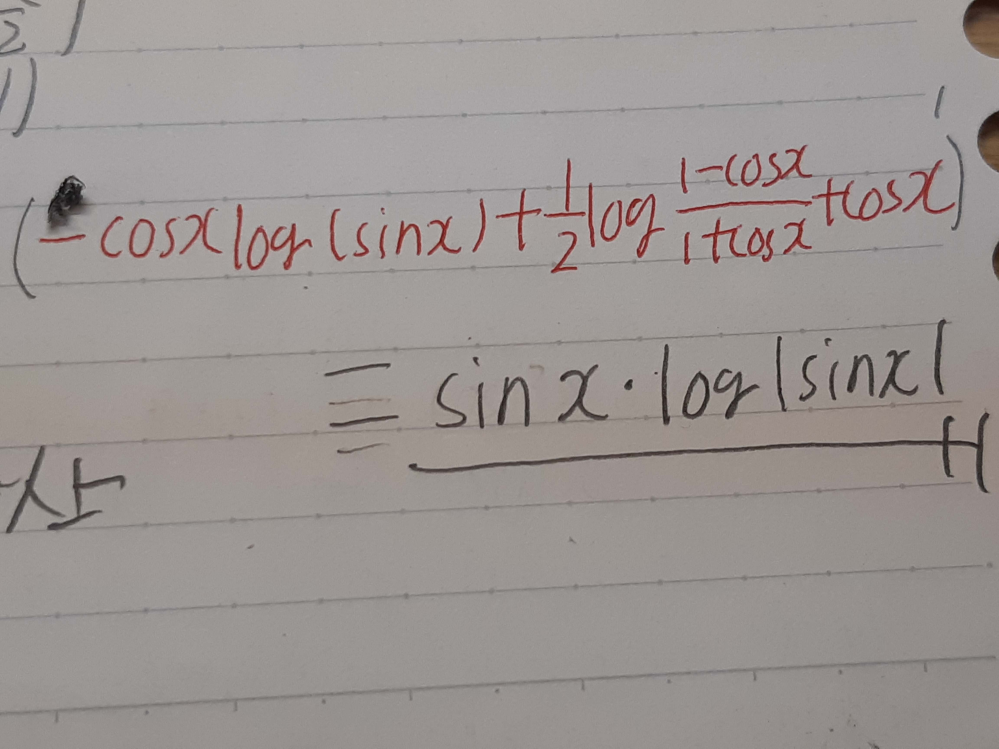 1)
(-cosx log(sinx)+\frac{1}{2}log\frac{1-cosx}{1+cosx}+cosx)'
= sinx·log|sinx|
산